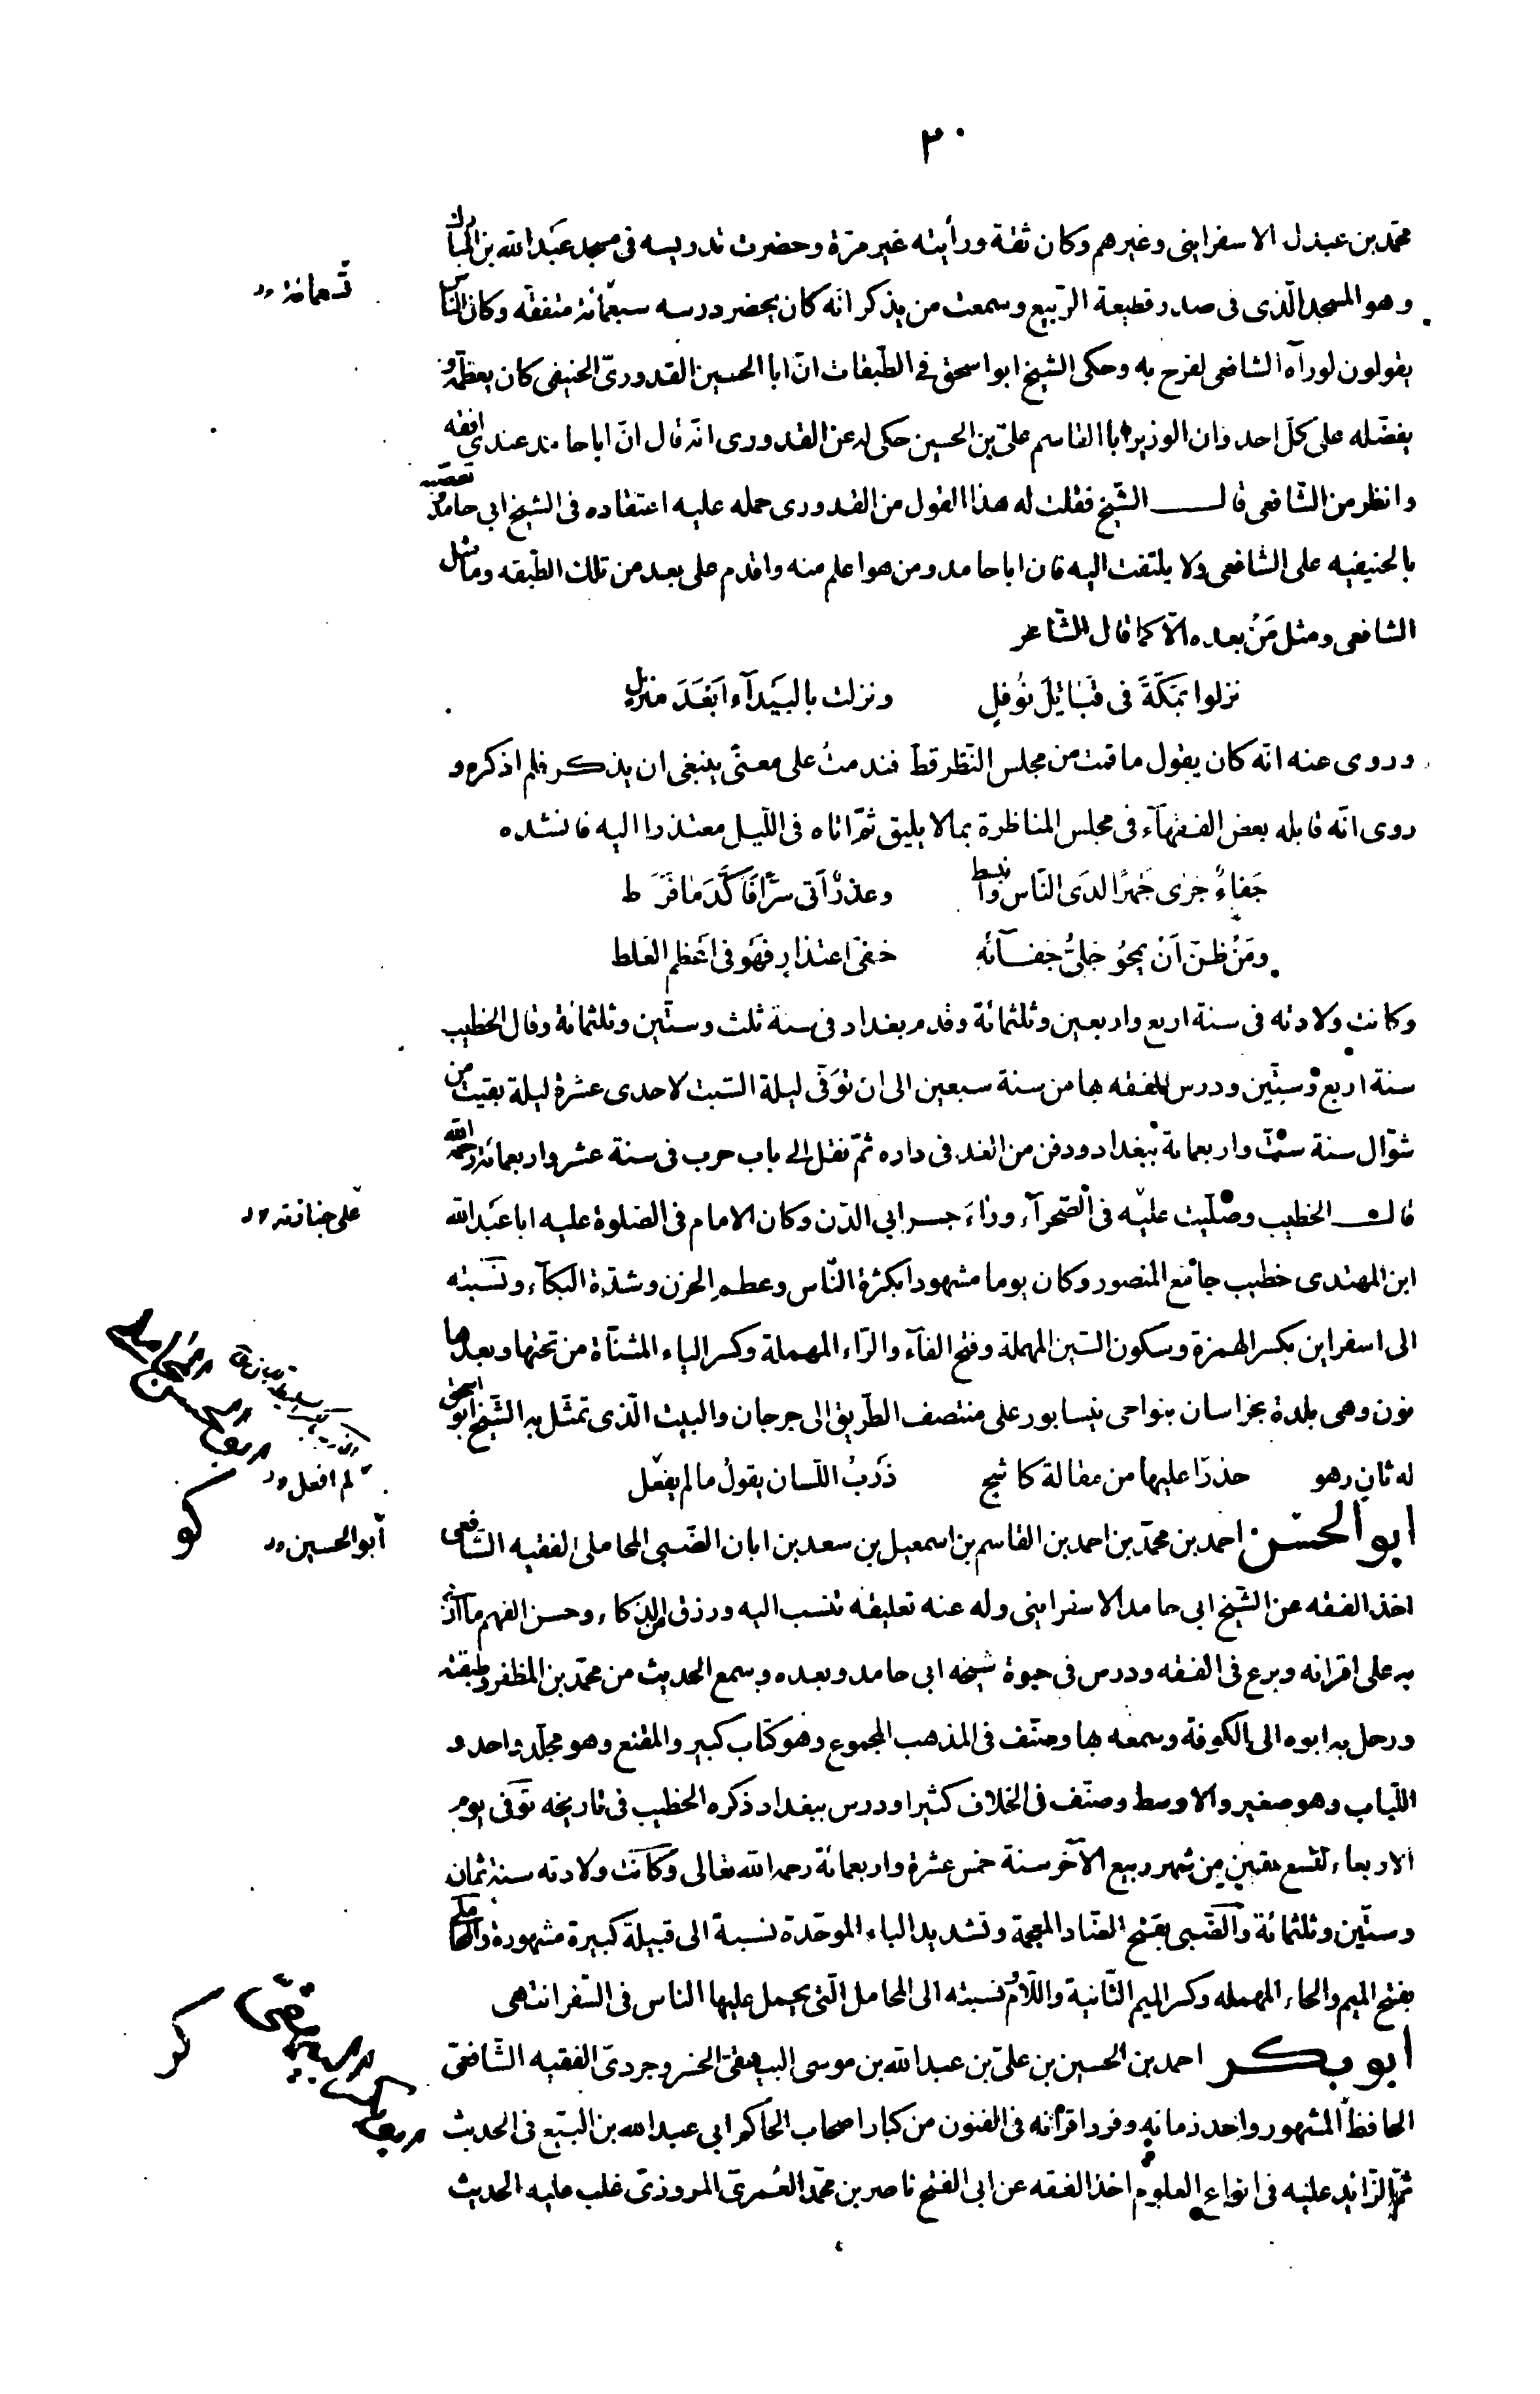 ٣٠
محمّد بن عبدل الاسفراينى وغيرهم وكان ثقة ورأيته غير مرّة وحضرت تدريسه فى مسجد عبد الله بن المبارك
وهو المسجد الّذى فى صدر قطيعة الرّبيع وسمعت من يذكر انّه كان يحضر درسه سبعمائة متفقّه وكان النّاس
تسعمائة
يقولون لو رآه الشافعى لفرح به وحكى الشيخ ابو اسحق فى الطّبقات انّ ابا الحسين القدورىّ الحنيفى كان يعظّمه و
يفضّله على كلّ احد وان الوزير ابا القاسم علىّ بن الحسين حكى له عن القدورى انّه قال انّ ابا حامد عندى افقه
وانظر من الشّافعى قال الشّيخ فقلت له هذا القول من القدورى حمله عليه اعتقاده فى الشيخ ابى حامد وتعصّبه
بالحنيفيه على الشافعى ولا يلتفت اليه فان ابا حامد ومن هو اعلم منه واقدم على بعد من تلك الطّبقه وما مثل
الشافعى ومثل مَنْ بعده الّا كما قال الشّاعر
نزلوا بمَكّةَ فى قَبَائِلَ نَوْفلٍ ونزلت بالبَيْدآء ابْعَدَ منزل
وروى عنه انّه كان يقول ما قمت من مجلس النّظر قطّ فندمتُ على معنًى ينبغى ان يذكر فلم اذكره و
روى انّه قابله بعض الفقهآء فى مجلس المناظرة بما لا يليق ثمّ اتاه فى اللّيل معتذرا اليه فانشده
جَفاءٌ جَرَى جَهرًا لدَى النّاس وانبسط وعذرٌ اَتى سرًّا فَاكَّدَ مَا فَرَط
ومَنْ ظنّ اَنْ يمحُو جَلىُّ جَفآئه خفىّ اعتذارٍ فهَو فى اَعْظم الغَلط
وكانت ولادته فى سنة اربع واربعين وثلثمائة وقدم بغداد فى سنة ثلث وستّين وثلثمائة وقال الخطيب
سنة اربع وستّين ودرس الفقه بها من سنة سبعين الى ان توَفّى ليلة السّبت لاحدى عشرة ليلة بقيت من
شوّال سنة ستّ واربعمائة ببغداد ودفن من الغد فى داره ثمّ نقل الى باب حرب فى سنة عشر واربعمائة رحمه الله
قال الخطيب وصلّيت عليْه فى الصّحرآء ورَاءَ جسر ابى الدّن وكان الامام فى الصّلوة عليه ابا عَبد الله
على جنازته
ابن المهتدى خطيب جامع المنصور وكان يوما مشهودا بكثرة النّاس وعظم الحزن وشدّة البكآء ونسبته
الى اسفراين بكسر الهمزة وسكون السّين المهملة وفتح الفآء والرّاء المهملة وكسر الياء المثنّاة من تحتها وبعدها
نون وهى بلدة بخراسان بنواحى نيسابور على منتصف الطّريق الى جرجان والبيت الّذى تمثّل به الشّيخ ابو اسحق
له ثانٍ وهو حذرًا عليها من مقالة كاشح ذَرَبُ اللّسان يقولُ ما لم يفعَل
لم افعل
ابو الحسَن احمد بن محمّد بن احمد بن القاسم بن اسمعيل بن سعد بن ابان الضّبى المحاملى الفقيه الشّافعى
ابو الحسين
اخذ الفقه عن الشّيخ ابى حامد الاسفراينى وله عنه تعليقه تنسب اليه ورزق من الذكاء وحسن الفهم ما
به على اقرانه وبرع فى الفقه ودرس فى حيوة شيخه ابى حامد وبعده وسمع الحديث من محمّد بن المظفر وطبقته
ورحل به ابوه الى الكوفة وسمعه بها وصنّف فى المذهب المجموع وهو كتاب كبير والمقنع وهو مجلّد واحد و
اللّباب وهو صغير والاوسط وصنّف فى الخلاف كثيرا ودرس ببغداد ذكره الخطيب فى تاريخه توَفى يوم
الاربعاء لتسع بقين من شهر ربيع الآخر سنة خمس عشرة واربعمائة رحمه الله تعالى وكانت ولادته سنة ثمان
وستّين وثلثمائة والضّبى بفتح الضّاد المعجمة وتشديد الباء الموحّدة نسبة الى قبيلة كبيرة مشهورة والمحاملى
بفتح الميم والحاء المهمله وكسر الميم الثّانية واللّام نسبته الى المحامل الّتى يحمل عليها الناس فى السّفر انتهى
أبو بكر احمد بن الحسين بن علىّ بن عبد الله بن موسى البيهقىّ الخسروجردىّ الفقيه الشّافعىّ
الحافظ المشهور واحد زمانه وفرد اقرانه فى الفنون من كبار اصحاب الحاكم ابى عبد الله بن البيّع فى الحديث
ثمّ الزّائد عليْه فى انواع العلوم اخذ الفقه عن ابى الفتح ناصر بن محمّد العُمرىّ المروزىّ غلب عليه الحديث